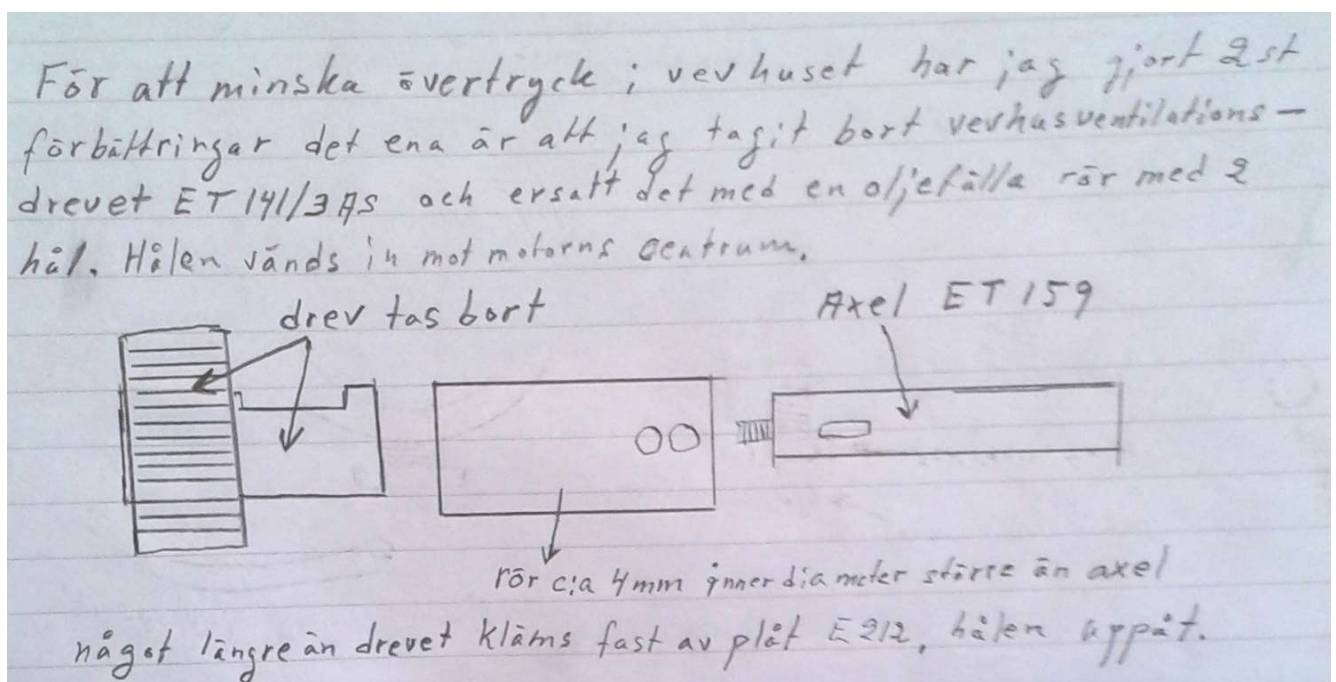 För att minska övertryck i vevhuset har jag gjort 2st
förbättringar det ena är att jag tagit bort vevhusventilations-
drevet ET141/3AS och ersatt det med en oljefälla rör med 2
hål. Hålen vänds in mot motorns centrum.
drev tas bort
Axel ET159
rör c:a 4mm inner diameter större än axel
något längre än drevet kläms fast av plåt E212, hålen uppåt.